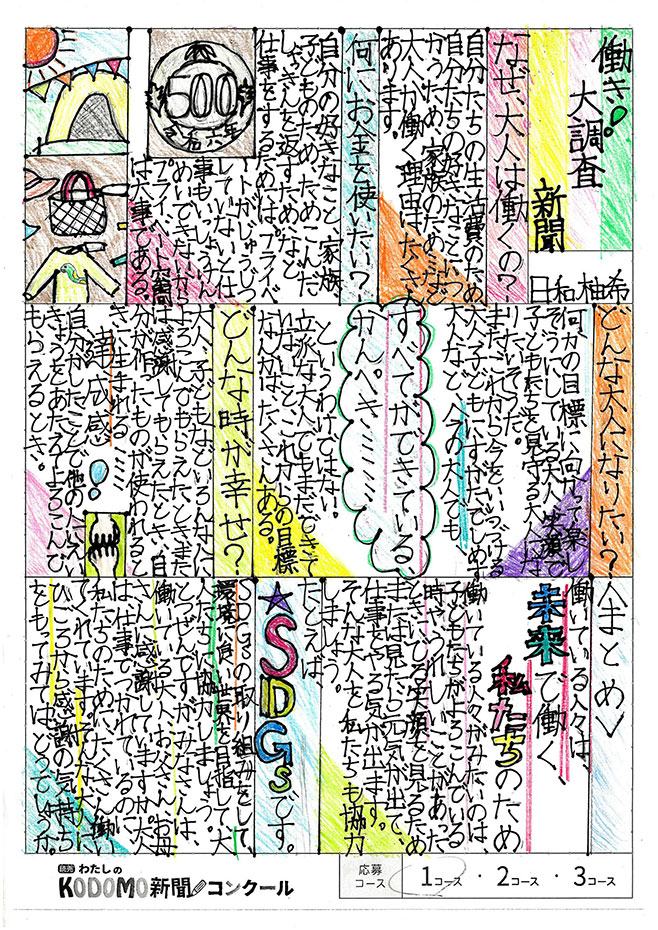 働き!
大調査
新聞
日和柚希
なぜ、大人は働くの?
自分たちの生活費のため、
自分たちの好きなことにつ
かうため、家族のためなど
大人が働く理由はたくさん
あります。
何にお金を使いたい?
自分の好きなこと、家族、
子どものため、ためこんだ
しゃっきんを返すため、など
仕事をするためには、プライベ
ートがじゅうじつ
していないとは
事もいっしょうけん
めいできないから
プライベート空間
は大事である。
500
令和六年
どんな大人になりたい?
何かの目標に向かって楽し
そうにしている大人、笑顔で
子どもたちを見守る大人にな
りたいそうだ。
まだこれから今をいいつづける
大人、子どもにすがたでしめす
大人など 今の大人でも、
すべてができている、
かんぺき
というわけではない。
立派な大人でもまだできて
いないこと、これからの目標
なんかは、たくさんある。
どんな時が幸せ?
大人、子どもなどいろんな人に
よろこんでもらえたとき、また
は感謝してもらえたとき、自
分が作ったものが使われると
き、生まれる
達成感!
自分がしたことで他の人にえい
きょうをあたえてよろこんで
もらえるとき。
まとめ
働いている人々は、
未来で働く、
私たちのため
働いている人々がみたいのは、
子どもたちがよろこんでいる
時やうれしいことがあった
ときにでる笑顔を見るため
または見たら元気が出て、
仕事をやる気が出ます。
そんな大人を私たちも協力
しましょう。
たとえば、
★SDGsです。
SDGsの取り組みをして、
環境に良い世界を目指して大
人たちに協力しましょう。
とつぜんですがみなさんは、
働いてる大人、お父さん、お母
さんに感謝していますか。大人
は仕事でつかれているのに、
私たちのためにたくさん働い
てくれています。そんな大人に
ひごろから感謝の気持ち
をもってみてはどうでしょうか。
読売 わたしの
KODOMO新聞コンクール
応募
コース
1コース・2コース・3コース